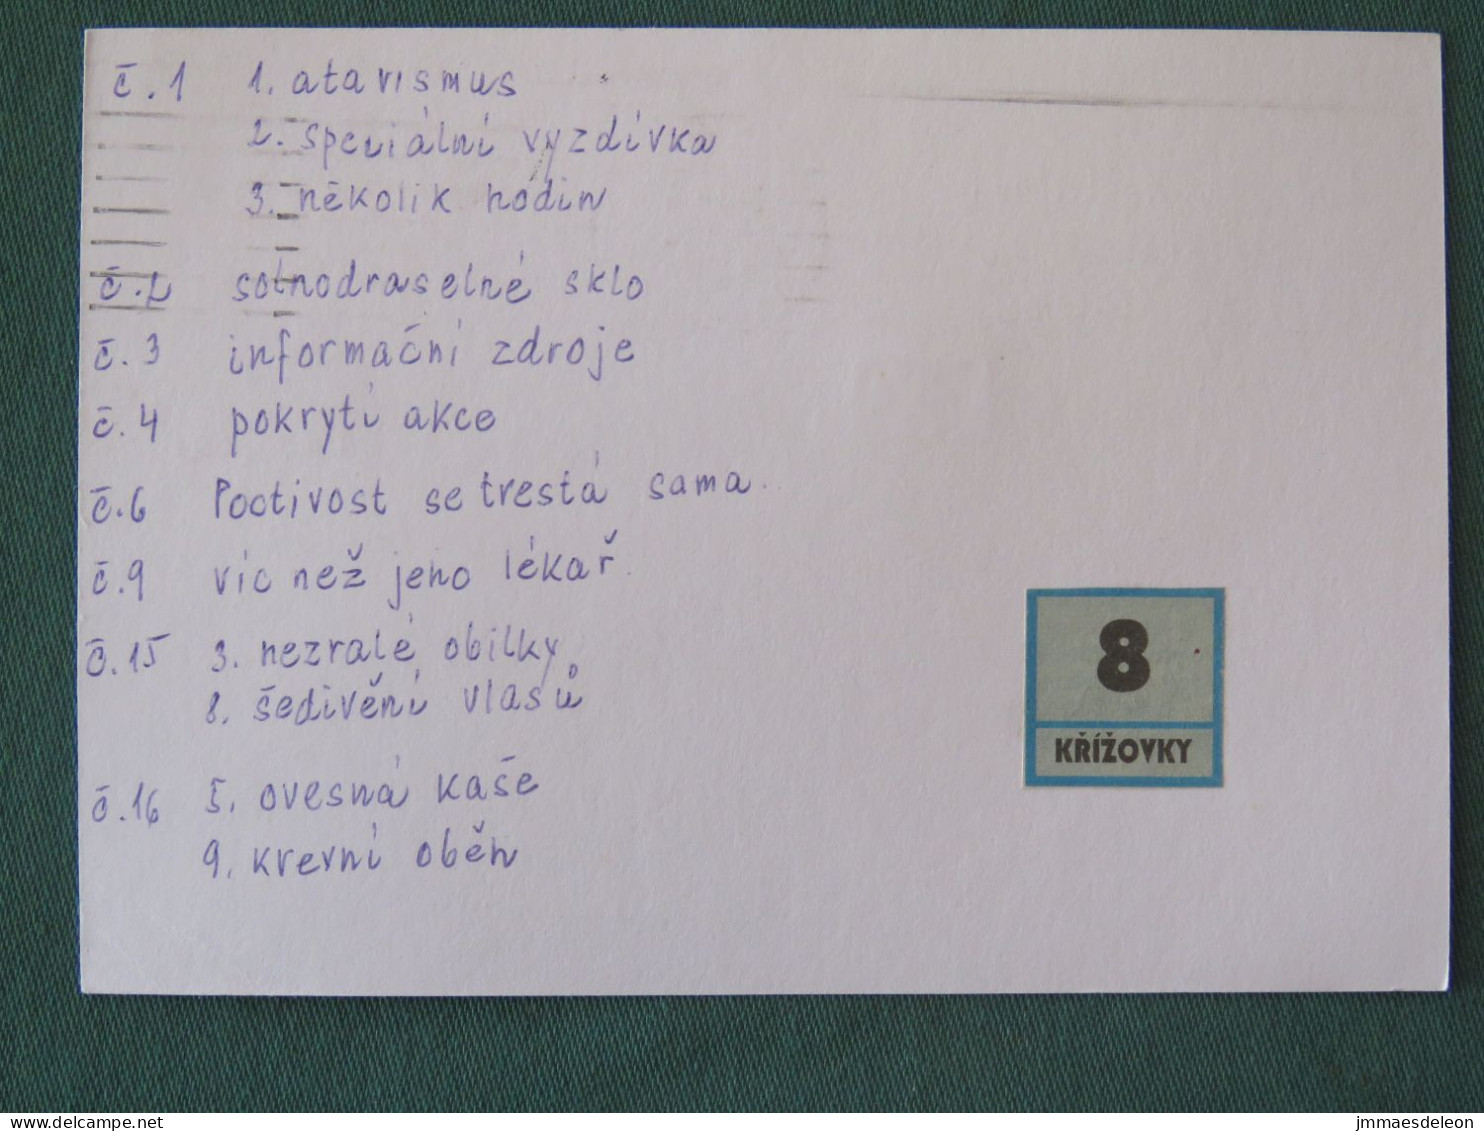 č.1 1. atavismus
2. speciální vyzdívka
3. několik hodin
č.2 solnodraselné sklo
č.3 informační zdroje
č.4 pokrytí akce
č.6 Poctivost se trestá sama.
č.9 víc než jeho lékař.
č.15 3. nezralé obilky
8. šedivění vlasů
č.16 5. ovesná kaše
9. krevní oběh
8
KŘÍŽOVKY
delcampe.net
jmmaesdeleon